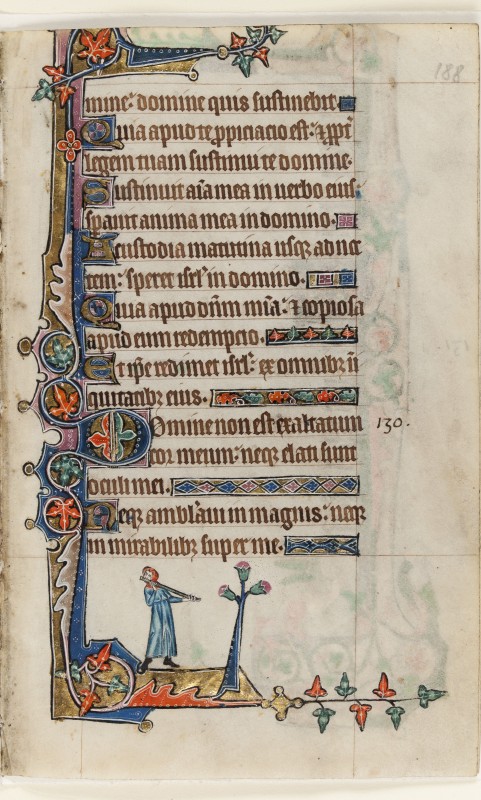 188
mine: domine quis sustinebit.
Quia apud te ꝓpiciacio est: ⁊ ꝓpt̃
legem tuam sustinui te domine.
Sustinuit aĩa mea in uerbo eius:
sꝑauit anima mea in domino.
A custodia matutina usqꝫ ad noc
tem: speret isrl̃ in domino.
Quia apud dñm mĩa: ⁊ copiosa
apud eum redempcio.
Et ip̃e redimet isrl̃: ex omnibꝫ ini
quitatibꝫ eius.
Domine non est exaltatum 130.
cor meum: neqꝫ elati sunt
oculi mei.
Neqꝫ ambl̃aui in magnis: neqꝫ
in mirabilibꝫ super me.